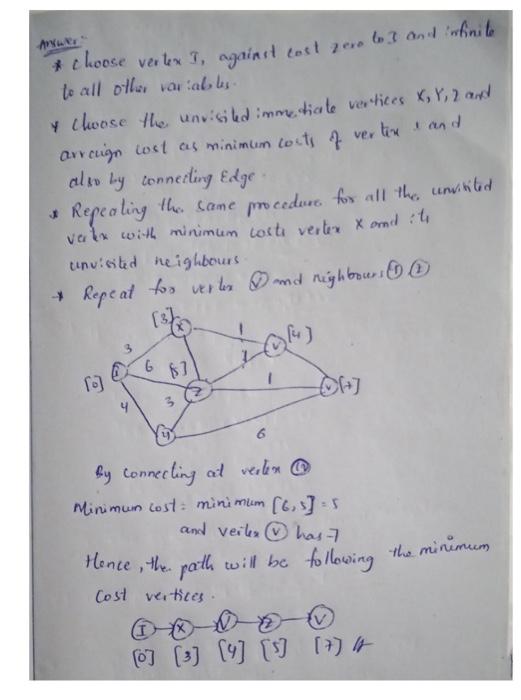 Answer:-
* Choose vertex I, against cost zero to I and infinite
to all other variables.
* Choose the unvisited immediate vertices X, Y, Z and
arraign cost as minimum costs of vertex and
also by connecting Edge.
* Repeating the same procedure for all the unvisited
vertex with minimum costs vertex X and its
unvisited neighbours.
* Repeat for vertex V and nighbours
[3]
X
1
V
[4]
3
6
[5]
1
[0]
1
Z
1
V
[7]
4
3
4
6
By connecting at vertex
Minimum cost: minimum [6,5] = 5
and vertex V has 7
Hence, the path will be following the minimum
cost vertices.
I X V Z V
[0] [3] [4] [5] [7]